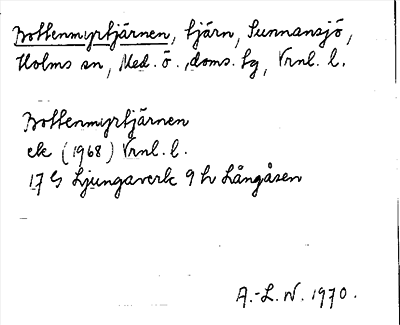 Bottenmyrtjärnen, tjärn, Sunnansjö,
Holms sn, Med. ö., doms. tg, Vrnl. l.
Bottenmyrtjärnen
ek (1968) Vrnl. l.
17 G Ljungaverk 9 h Långåsen
A.-L. N. 1970.